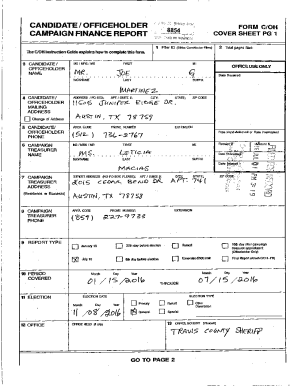 CANDIDATE / OFFICEHOLDER CAMPAIGN FINANCE REPORT
8854
FORM C/OH
COVER SHEET PG 1
The C/OH Instruction Guide explains how to complete this form.
1 Filer ID (Ethics Commission Filers)
2 Total pages filed:
3 CANDIDATE / OFFICEHOLDER NAME
MS / MRS / MR FIRST MI
MR. JOE G
NICKNAME LAST SUFFIX
MARTINEZ
OFFICE USE ONLY
Date Received
4 CANDIDATE / OFFICEHOLDER MAILING ADDRESS
Change of Address
ADDRESS / PO BOX; APT / SUITE #; CITY; STATE; ZIP CODE
AUSTIN, TX 78759
5 CANDIDATE / OFFICEHOLDER PHONE
AREA CODE PHONE NUMBER EXTENSION
(512)
Date Hand-delivered or Date Postmarked
6 CAMPAIGN TREASURER NAME
MS / MRS / MR FIRST MI
MS. LETICIA
NICKNAME LAST SUFFIX
MACIAS
7 CAMPAIGN TREASURER ADDRESS
(Residence or Business)
2015 CEDAR BEND DR. APT. 741
AUSTIN, TX 78758
8 CAMPAIGN TREASURER PHONE
AREA CODE PHONE NUMBER EXTENSION
227-9733
9 REPORT TYPE
January 15
30th day before election
Runoff
15th day after campaign treasurer appointment
(Officeholder Only)
July 15
8th day before election
Exceeded $500 limit
Final Report (Attach C/OH - FR)
10 PERIOD COVERED
Month Day Year
01 / 15 / 2016
THROUGH
Month Day Year
07 / 15 / 2016
11 ELECTION
ELECTION DATE
Month Day Year
11 / 08 / 2016
ELECTION TYPE
Primary
Runoff
Other Description
General
Special
12 OFFICE
OFFICE HELD (if any)
13 OFFICE SOUGHT (if known)
TRAVIS COUNTY SHERIFF
GO TO PAGE 2